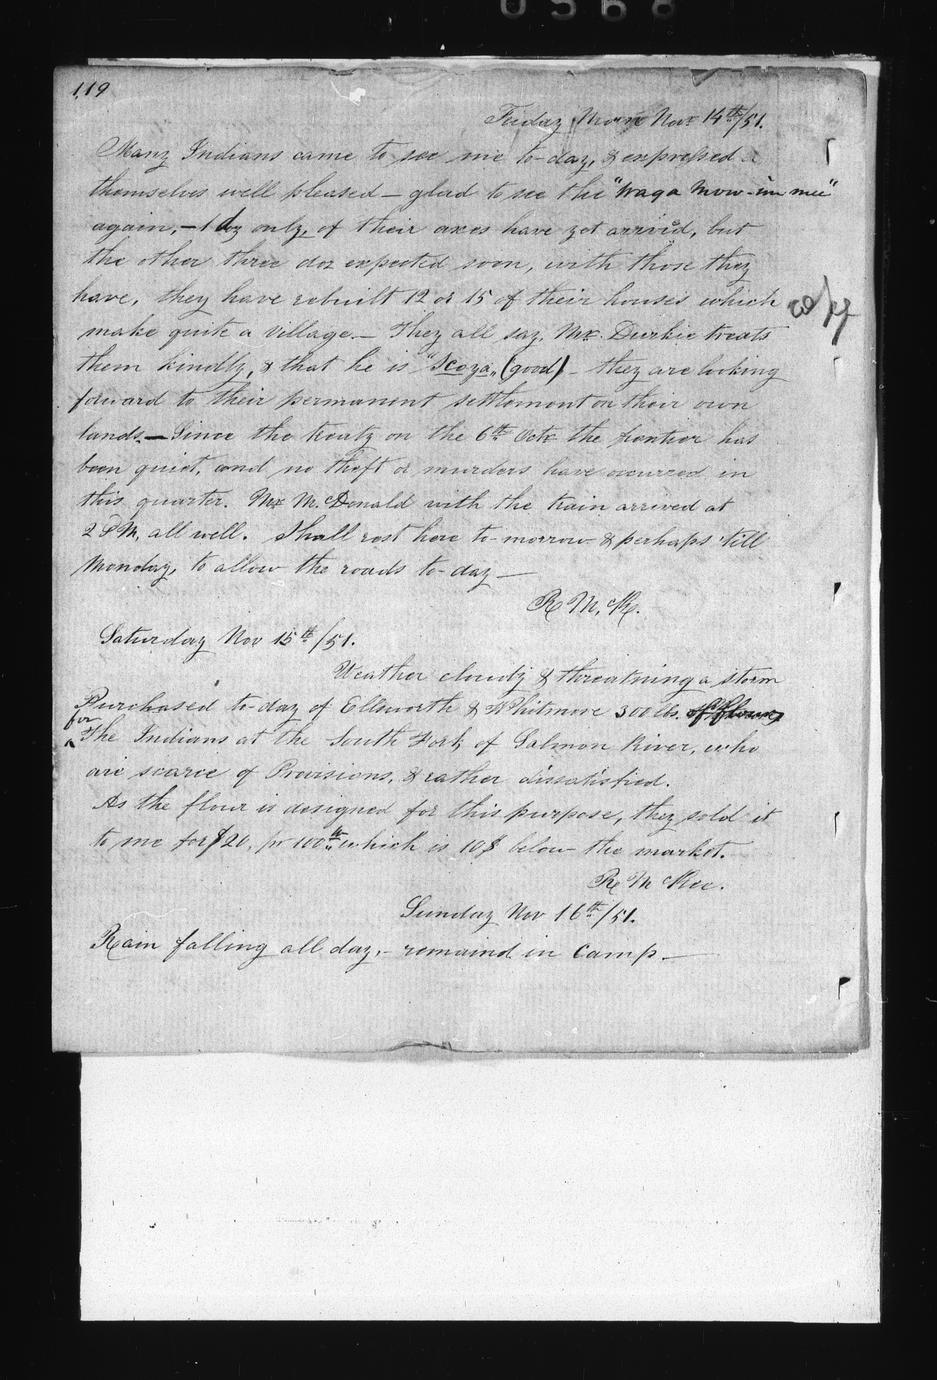 0568
119
Friday Morn Nov 14th/51.
Many Indians came to see me to-day, & expressed
themselves well pleased — glad to see the "Waga Mow-im mee"
again, — 1 doz only, of their axes have yet arrivd, but
the other three doz expected soon, with those they
have, they have rebuilt 12 or 15 of their houses which
make quite a village. — They all say, Mr. Durkie treats
them kindly, & that he is "Scoya" (good) — they are looking
forward to their permanent settlement on their own
lands. — Since the treaty on the 6th Octr the frontier has
been quiet, and no theft or murders have occurred in
this quarter. Mr McDonald with the train arrived at
2 P.M, all well. Shall rest here to-morrow & perhaps 'till
Monday, to allow the roads to-day —
R McK.
Saturday Nov 15th/51.
Weather cloudy & threatning a storm
Purchased to-day of Ellsworth & Whitmore 300 lbs. of flour
for
The Indians at the South Fork of Salmon River, who
are scarce of Provisions, & rather dissatisfied.
As the flour is designed for this purpose, they sold it
to me for $20, pr 100 lb which is 10$ below the market.
R McKee.
Sunday Nov 16th/51.
Rain falling all day, — remaind in Camp. —